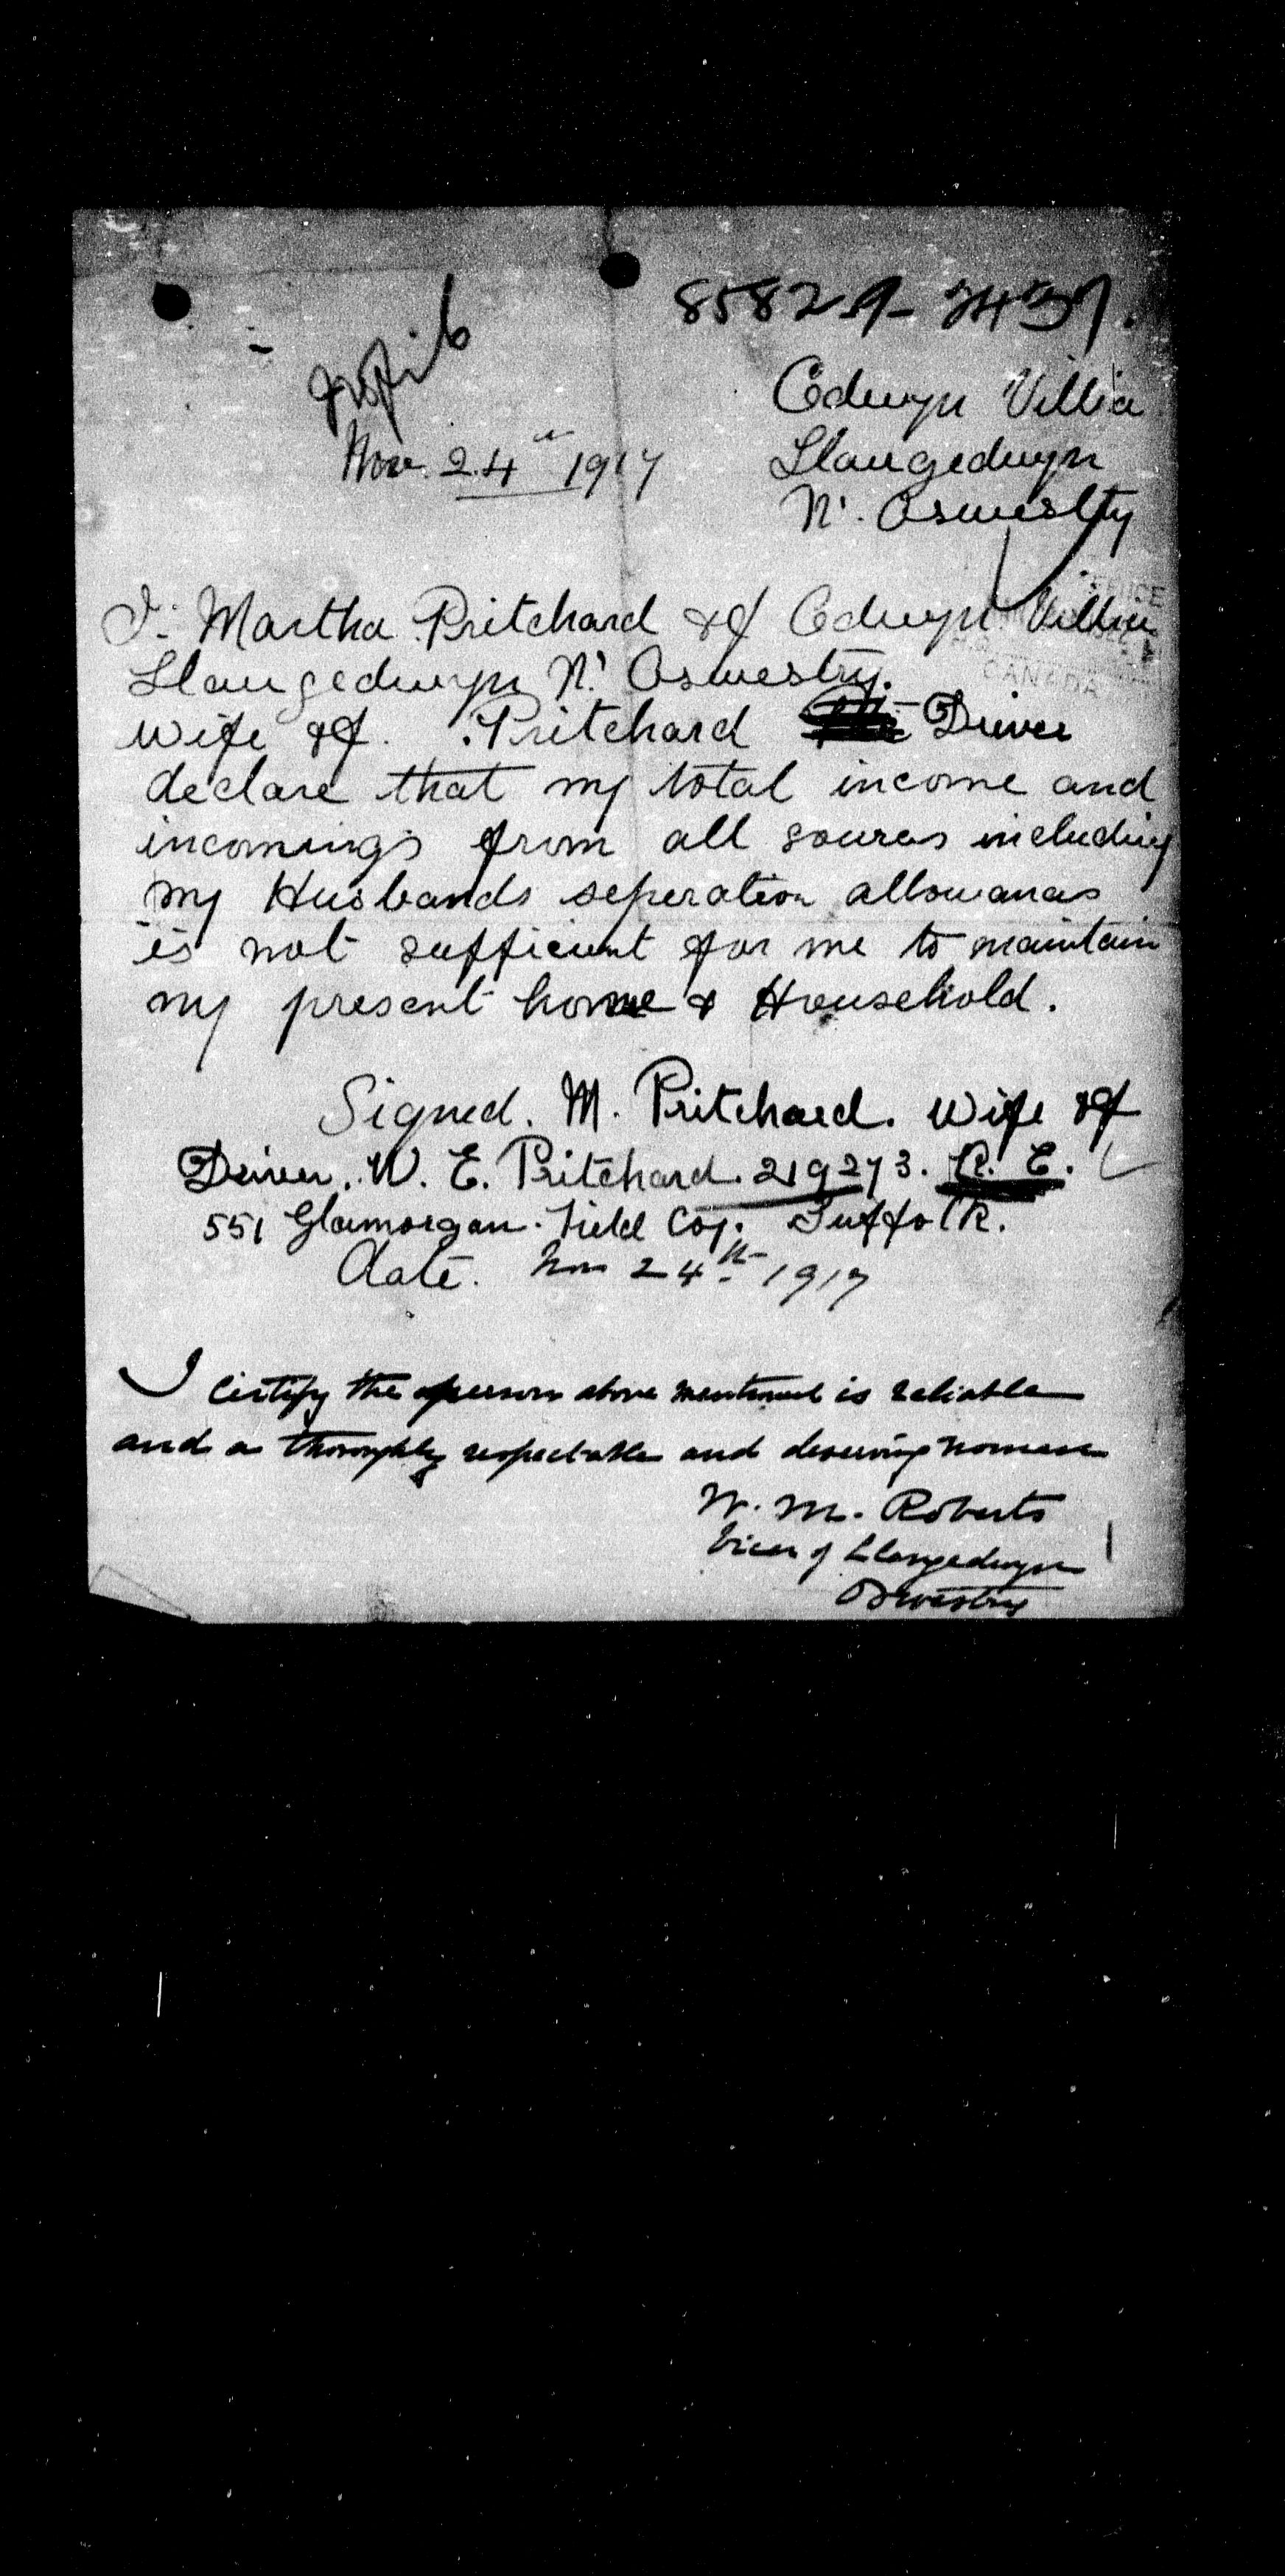 85829-2437.
Edwyn Villia
Nov. 24th 1917
Llangedwyn
Nr. Oswestry
OFFICE
CANADA
I. Martha Pritchard of Edwyn Villia
Llangedwyn Nr. Oswestry.
wife of. Pritchard Driver
declare that my total income and
incomings from all sources including
my Husbands seperation allowances
is not sufficient for me to maintain
my present home & Household.
Signed. M. Pritchard. wife of
Driver. W. E. Pritchard. 219273. R. E.
551 Glamorgan. Field Coy. Suffolk.
date. Nov 24th 1917
I certify the person above mentioned is reliable
and a thoroughly respectable and deserving woman
W. M. Roberts
Vicar of Llangedwyn
Oswestry